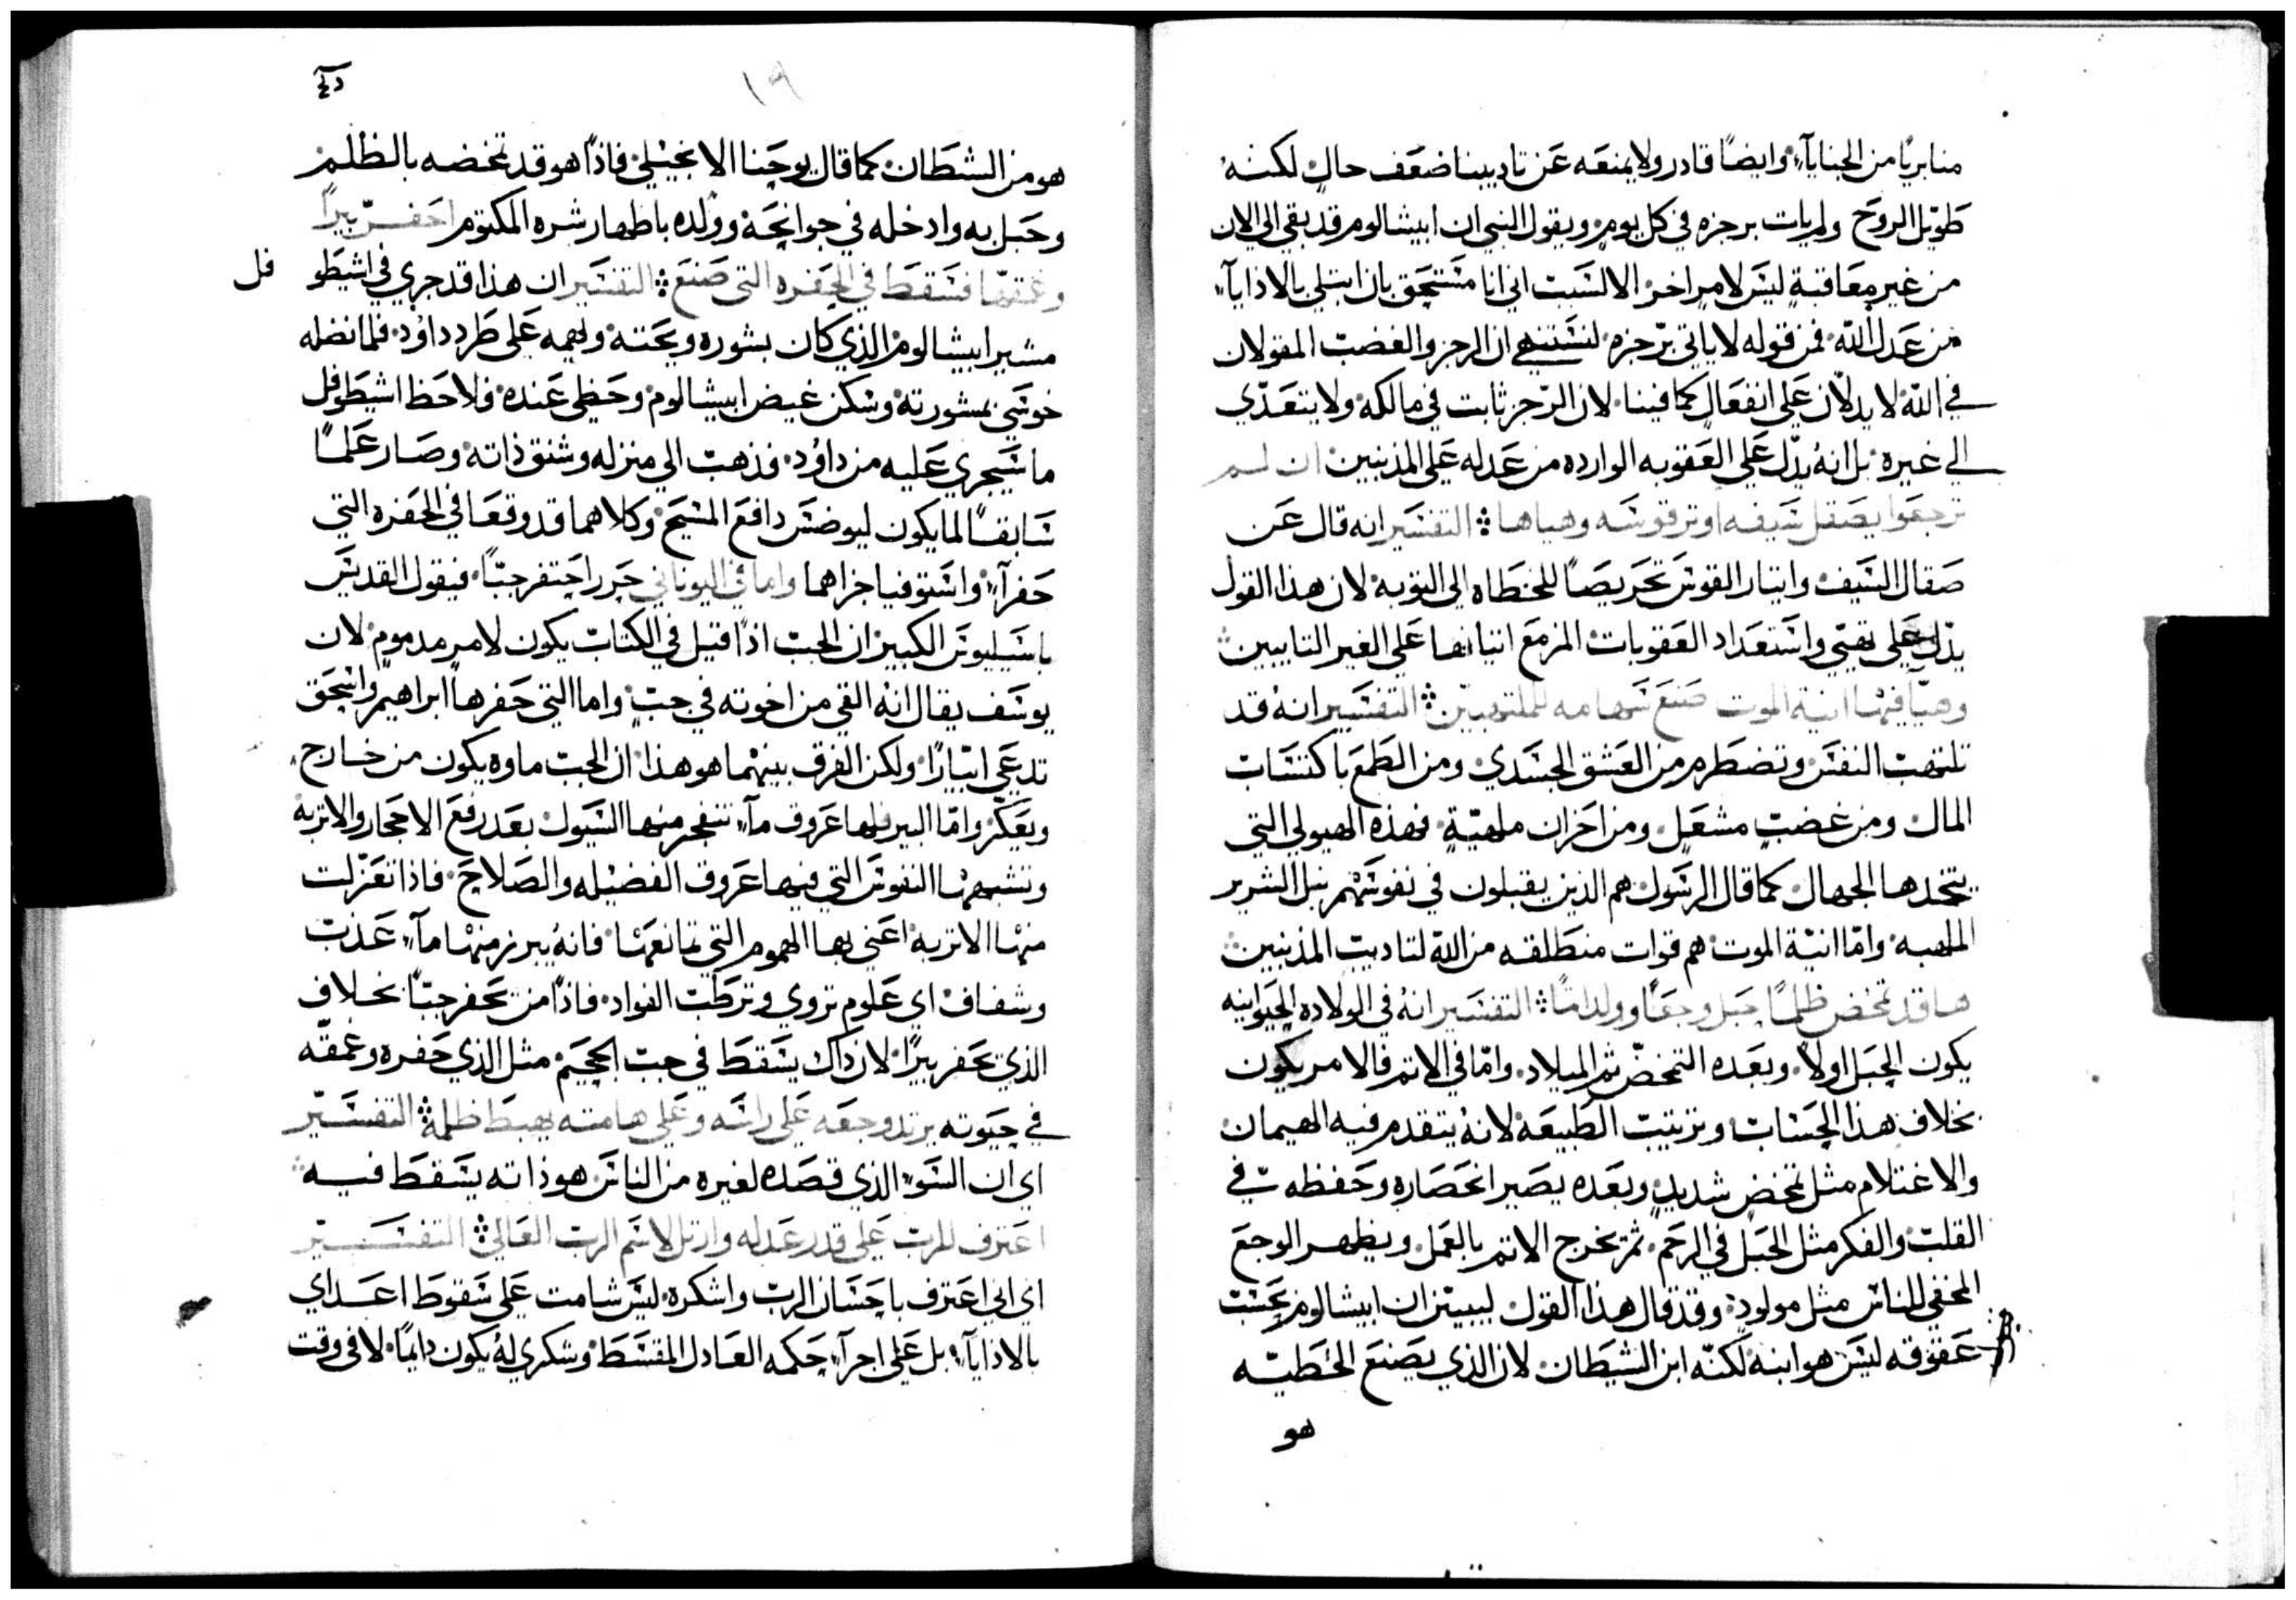 منا بريًا من الجنايآء وايضًا قادر ولا يمنعه عن تاديبنا ضعف حالٍ لكنهُ
طويل الروح ولم يات برجزه في كل يوم ويقول النبي ان ابيشالوم قد بقي الي الان
من غير معاقبةٍ ليس لامرٍ اخر الا لسبب اني انا مستحق بان ابتلي بالاذايآء
من عدل اللّه فمن قوله لا ياتي برّجزه لنستنهج ان الرجز والغضب المقولان
في اللّه لا يدلّان علي انفعال كما فينا لان الرّجز ثابت في مالكه ولا يتعدّي
الي غيره بل انهُ يدّل علي العقوبه الوارده من عدله علي المذنبين ان لم
ترجعوا يصقل سيفه اوتر قوسه وهياها ܀ التفسير انه قال عن
صقال السيف وايتار القوس تحريصًا للخطاه الي التوبه لان هذا القول
يدّل علي تهيّي واستعداد العقوبات المزمع اتيانها علي الغير التايبين
وهيّا فيها انية الموت صنع سهامه للملتهبين ܀ التفسير انه قد
تلتهب النفس وتضطرم من العشق الجسدي ومن الطمع باكتساب
المال ومن غضبٍ مشعلٍ ومن احزان ملهبّةٍ فهذه الهيولي التي
يتخدها الجهال كما قال الرسول هم الذين يقبلون في نفوسهم نبل الشرير
الملهبه وامّا انيّة الموت هم قوات منطلقه من اللّه لتاديب المذنبين
ها قد تمخض ظلمًا حبل وجعًا وولد اثمًا ܀ التفسير انهُ في الولاده الحيوانيه
يكون الحبل اولًا وبعده التمخضّ ثم الميلاد وامّا في الاتم فالامر يكون
بخلاف هذا الحساب وترتيب الطبيعه لانهُ يتقدم فيه الهيمان
والاغتلام مثل تمخض شديدٍ وبعده يصير انحصاره وحفظه في
القلب والفكر مثل الحبل في الرحم ثم يخرج الاتم بالعمل ويظهر الوجع
المخفي للناس مثل مولودٍ وقد قال هذا القول ليبيّن ان ابيشالوم بحسب
عقوقه ليس هو ابنه لكنّه ابن الشيطان لان الذي يصنع الخطيّه
هو
١٩
هو من الشطان كما قال يوحنا الانجيلي فاذًا هو قد تمخضه بالظلم
وحبل به وادخله في جوانحه وولده باظهار شره المكتوم احفر بيرًا
وعمقها فسقط في الحفره التي صنع ܀ التفسير ان هذا قد جري في اشيطو
فل
مشير ابيشالوم الذي كان يشوره ويحته ويهمه علي طرد داوُد فلما نضله
خوشي بمشورته وسكن غيض ابيشالوم وحظي عنده فلاحظ اشيطوفل
ما سيجري عليه من داوُد فذهب الي منزله وشنق ذاته وصار علمًا
سابقًا لما يكون ليوضس دافع المسيح وكلاهما قد وقعا في الحفره التي
حفرآء واستوفيا جزاهما واما في اليوناني حرر احتفر جبّاً فيقول القديس
باسيليوس الكبير ان الجب اذًا قيل في الكتاب يكون لامر مدموم لان
يوسف يقال انهُ القي من اخوته في جبٍ واما التي حفرها ابراهيم واسحق
تدعي ابيارًا ولكن الفرق بينهما هو هذا ان الجب ماوه يكون من خارج
ويعكّر وامّا البير فلها عروق مآء تنفجر منها السيول بعد رفع الاحجار والاتربه
وتشبهها النفوس التي فيها عروق الفضيله والصلاح فاذا تعزّلت
منها الاتربه اعني بها الهموم التي تمانعها فانهُ يبرز منها مآء عذب
وشفاف اي علوم تروي وترطّب الفواد فاذًا من يحفر جبّاً بخلاف
الذي يحفر بيرًا لان ذاك يسقط في جب الجحيم مثل الذي حفره وعمقه
في حيوته يرتد وجعه علي راسه وعلي هامته يهبط ظلمة ܀ التفسير
اي ان السوء الذي قصده لغيره من الناس هو ذاته يسقط فيه
اعترف للرب علي قدر عدله وارتل لاسم الرب العالي ܀ التفسير
اي اني اعترف باحسان الرب واشكره ليس شامت علي سقوط اعداي
بالاذايآء بل علي اجرآء حكمه العادل المقسط وشكري لهُ يكون دايمًا لا في وقت